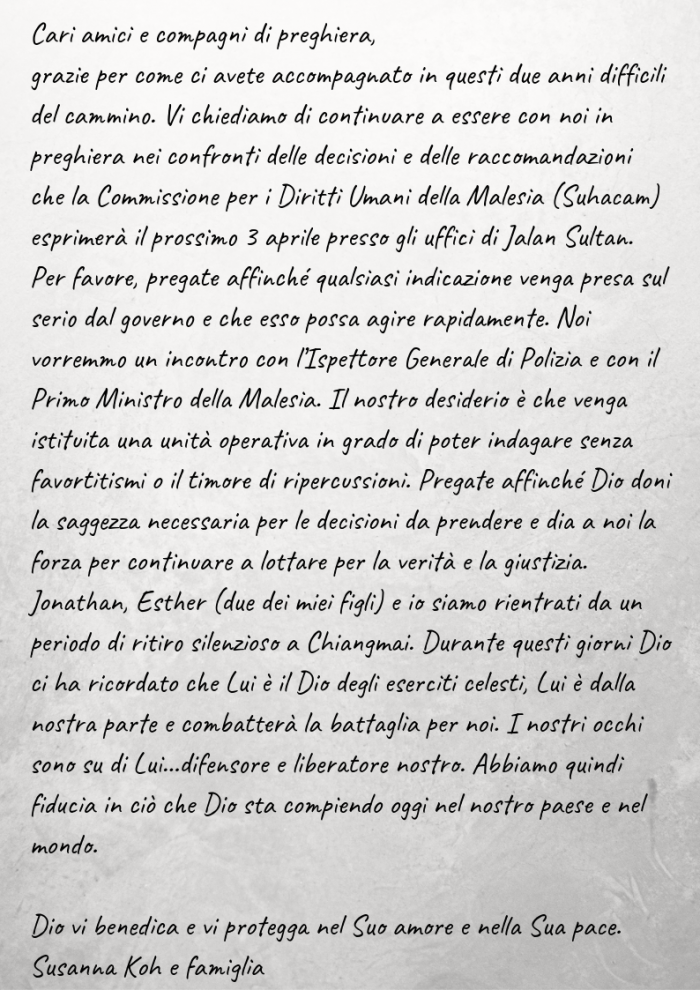 Cari amici e compagni di preghiera,
grazie per come ci avete accompagnato in questi due anni difficili
del cammino. Vi chiediamo di continuare a essere con noi in
preghiera nei confronti delle decisioni e delle raccomandazioni
che la Commissione per i Diritti Umani della Malesia (Suhacam)
esprimerà il prossimo 3 aprile presso gli uffici di Jalan Sultan.
Per favore, pregate affinché qualsiasi indicazione venga presa sul
serio dal governo e che esso possa agire rapidamente. Noi
vorremmo un incontro con l'Ispettore Generale di Polizia e con il
Primo Ministro della Malesia. Il nostro desiderio è che venga
istituita una unità operativa in grado di poter indagare senza
favortitismi o il timore di ripercussioni. Pregate affinché Dio doni
la saggezza necessaria per le decisioni da prendere e dia a noi la
forza per continuare a lottare per la verità e la giustizia.
Jonathan, Esther (due dei miei figli) e io siamo rientrati da un
periodo di ritiro silenzioso a Chiangmai. Durante questi giorni Dio
ci ha ricordato che Lui è il Dio degli eserciti celesti, Lui è dalla
nostra parte e combatterà la battaglia per noi. I nostri occhi
sono su di Lui...difensore e liberatore nostro. Abbiamo quindi
fiducia in ciò che Dio sta compiendo oggi nel nostro paese e nel
mondo.
Dio vi benedica e vi protegga nel Suo amore e nella Sua pace.
Susanna Koh e famiglia